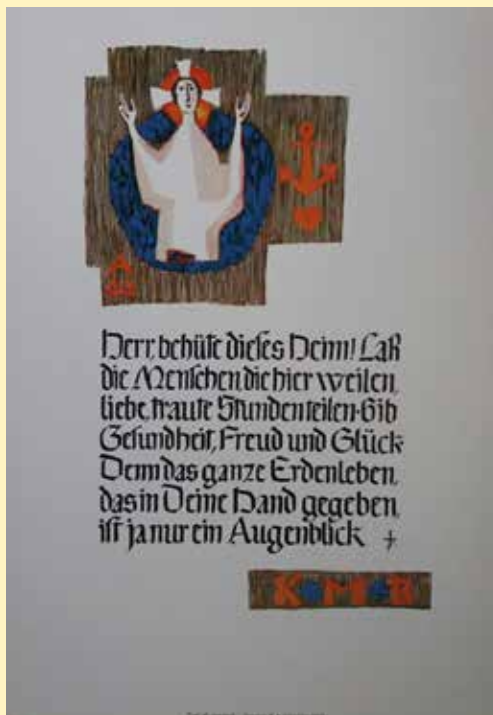 Herr, behüte dieses Heim! Laß
die Menschen, die hier weilen,
liebe, traute Stunden teilen. Gib
Gesundheit, Freud und Glück
Denn das ganze Erdenleben,
das in Deine Hand gegeben,
ist ja nur ein Augenblick
K+M+B